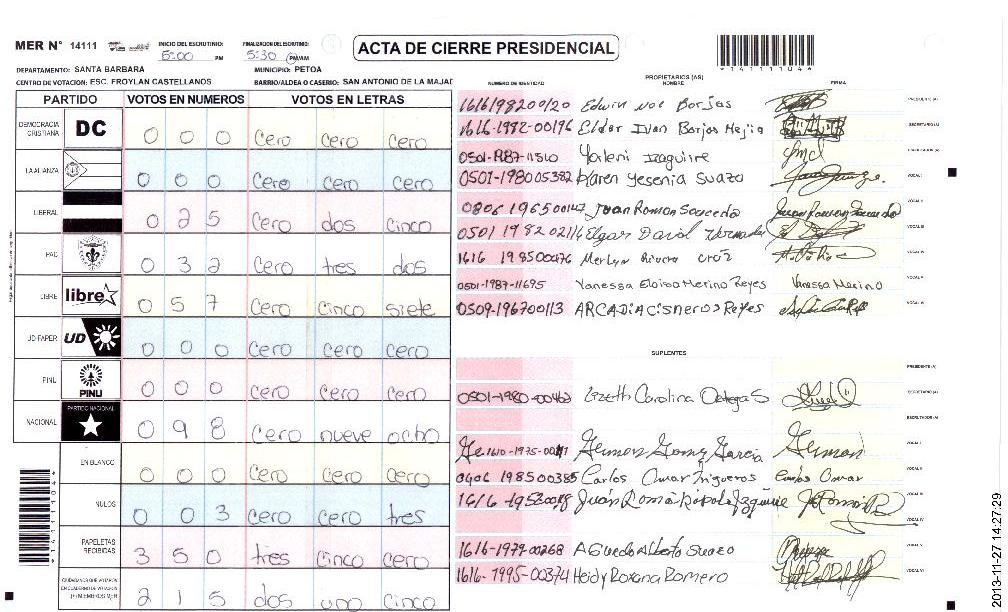 MER N° 14111 INICIO DEL ESCRUTINIO: 5:00 PM FINALIZACION DEL ESCRUTINIO: 5:30 PM/AM
ACTA DE CIERRE PRESIDENCIAL
14111104
DEPARTAMENTO: SANTA BARBARA MUNICIPIO: PETOA
CENTRO DE VOTACION: ESC. FROYLAN CASTELLANOS BARRIO/ALDEA O CASERIO: SAN ANTONIO DE LA MAJAD
PARTIDO VOTOS EN NUMEROS VOTOS EN LETRAS
DEMOCRACIA CRISTIANA DC 0 0 0 Cero Cero Cero
LA ALIANZA 0 0 0 Cero Cero Cero
LIBERAL 0 2 5 Cero dos Cinco
PAC 0 3 2 Cero tres dos
LIBRE libre 0 5 7 Cero Cinco Siete
UD-FAPER UD 0 0 0 Cero Cero Cero
PINU PINU 0 0 0 Cero Cero Cero
NACIONAL PARTIDO NACIONAL 0 9 8 Cero nueve ocho
EN BLANCO 0 0 0 Cero Cero Cero
NULOS 0 0 3 Cero Cero tres
PAPELETAS RECIBIDAS 3 5 0 tres Cinco Cero
CIUDADANOS QUE VOTARON EN CUADERNO DE VOTACION (+) MIEMBROS MER 2 1 5 dos uno Cinco
PROPIETARIOS (AS)
NUMERO DE IDENTIDAD NOMBRE FIRMA
1616198200120 Edwin Noe Borjas PRESIDENTE (A)
1616-1992-00196 Elder Ivan Borjas Mejia SECRETARIO (A)
0501-1987-11510 Yaleni Izaguirre
0501-198005382 Karen Yesenia Suazo VOCAL I
0806 196500147 Juan Ramon Saucedo VOCAL II
0501 1982 02114 Elgar David VOCAL III
1616 198500476 Merlyn Rivera Cruz VOCAL IV
0501-1987-11695 Vanessa Eloisa Merino Reyes Vanessa Merino VOCAL V
0509-196700113 ARCADIA Cisneros Reyes VOCAL VI
SUPLENTES
PRESIDENTE (A)
0501-1980-00462 Lizeth Carolina Ortega S SECRETARIO (A)
ESCRUTADOR (A)
1610-1975-00 German Gomez Garcia German VOCAL I
0406 198500385 Carlos Omar Trigueros Carlos Omar VOCAL II
VOCAL III
VOCAL IV
1616-1979-00268 Aguedo Alberto Suazo VOCAL V
1616-1995-00374 Heidy Roxana Romero VOCAL VI
14111104
2013-11-27 14:27:29